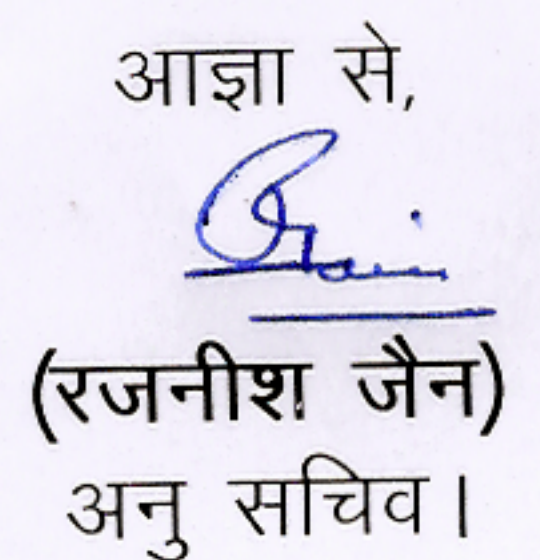 आज्ञा से,
(रजनीश जैन)
अनु सचिव।